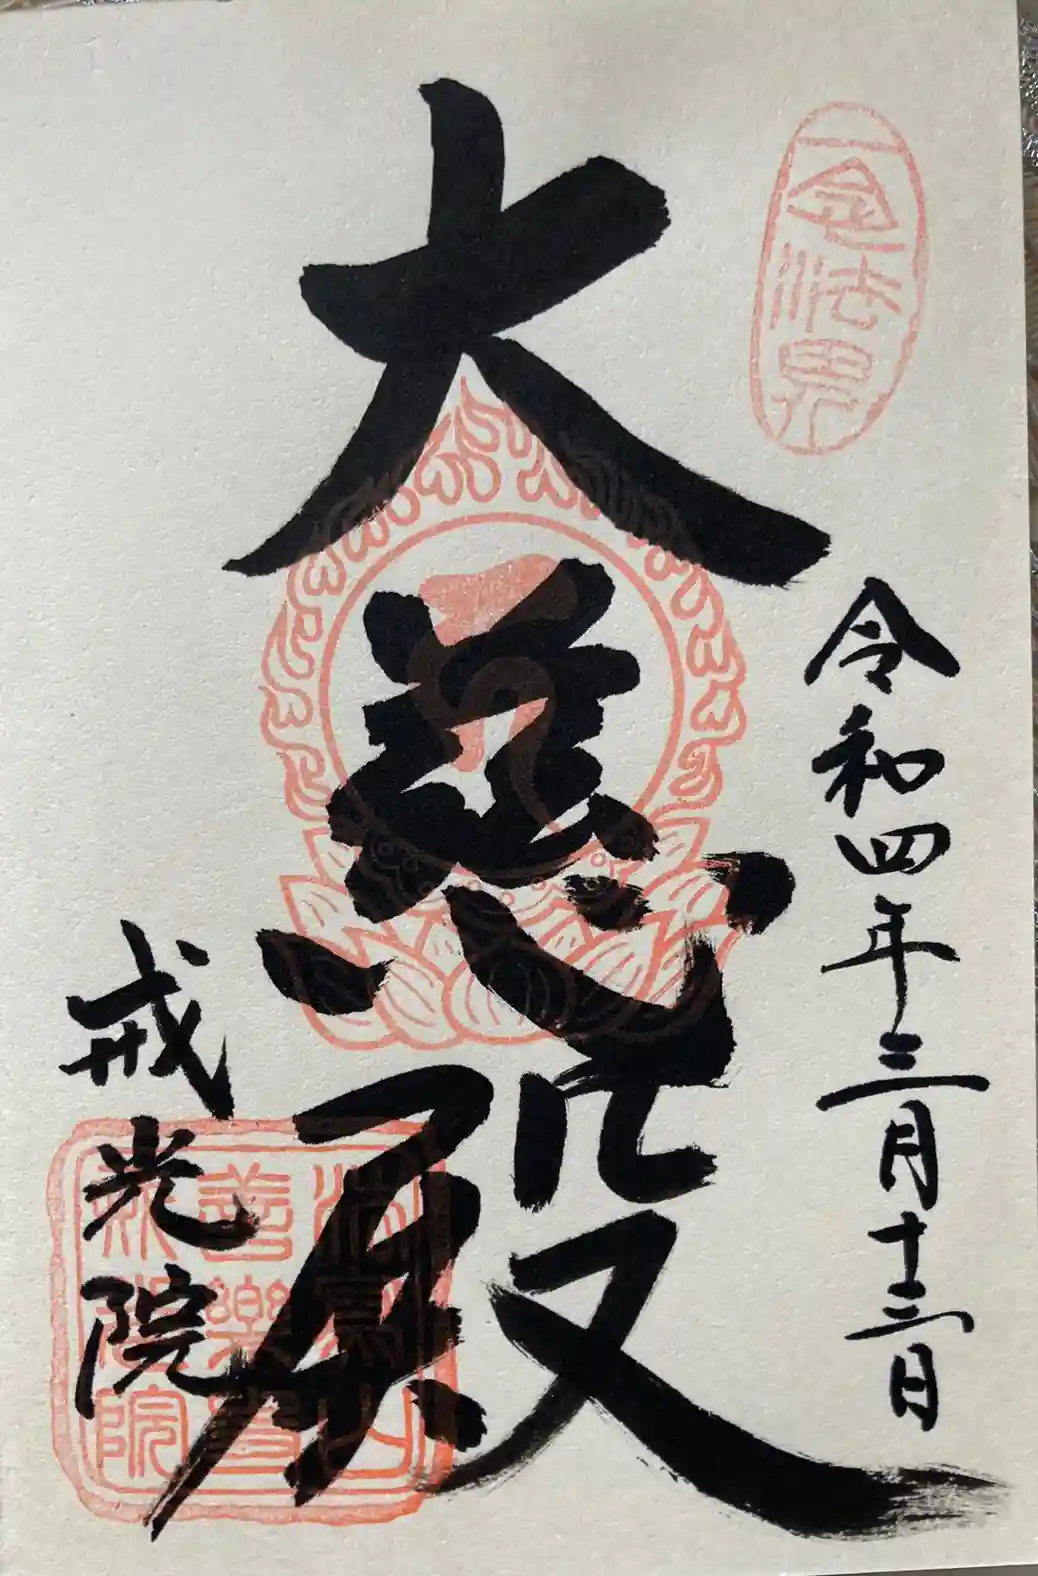 一念法界
令和四年三月十三日
大慈殿
戒光院